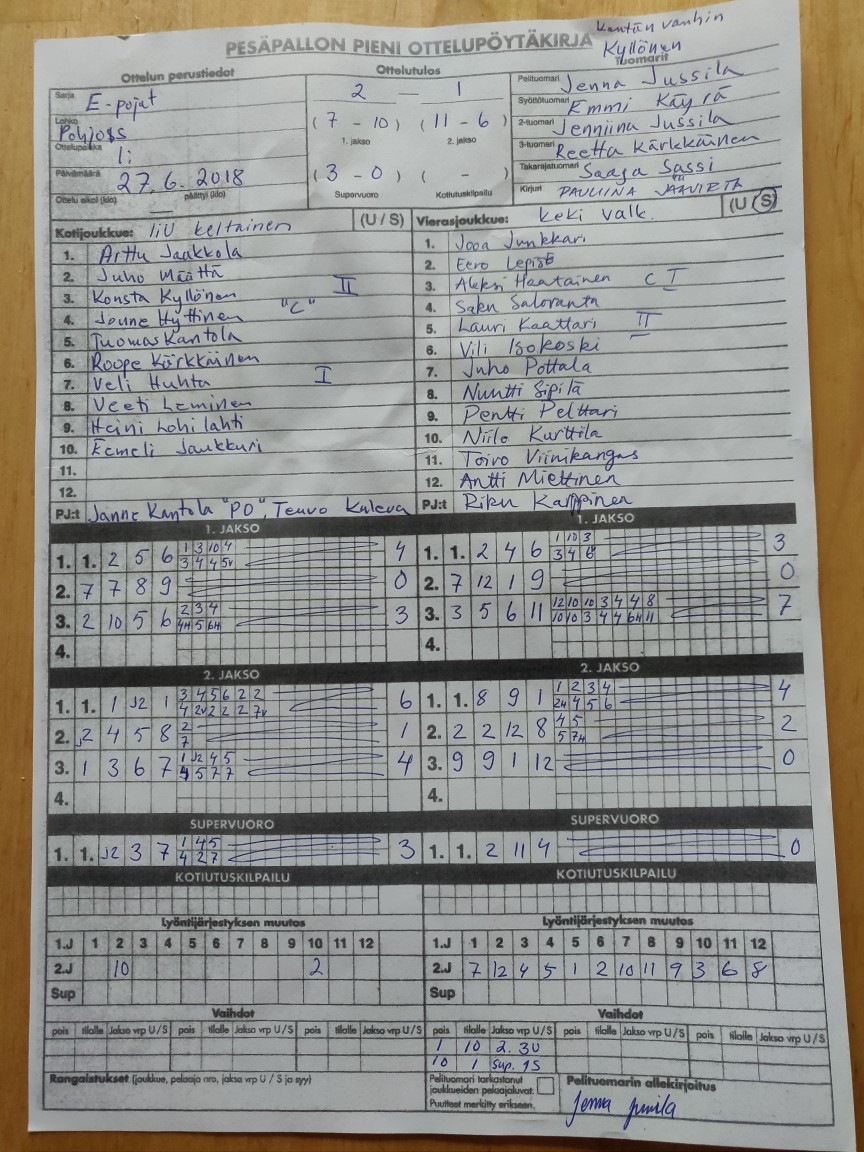 Kentän vanhin
Kyllönen
PESÄPALLON PIENI OTTELUPÖYTÄKIRJA
Ottelun perustiedot
Ottelutulos
Tuomarit
Sarja E-pojat
Lohko Pohjoss
Ottelupaikka Ii
Päivämäärä 27.6.2018
Ottelu alkoi (klo) päättyi (klo)
2 — 1
(7 - 10) (11 - 6)
1. jakso 2. jakso
(3 - 0) ( - )
Supervuoro Kotiutuskilpailu
Pelituomari Jenna Jussila
Syöttötuomari Emmi Käyrä
2-tuomari Jenniina Jussila
3-tuomari Reetta Kärkkäinen
Takarajatuomari Saaga Sassi
Kirjuri PAULIINA
Kotijoukkue: IiU Keltainen (U / S)
1. Arttu Jaakkola
2. Juho Määttä
3. Konsta Kyllönen II
4. Joune Hyttinen "C"
5. Tuomas Kantola
6. Roope Kärkkäinen
7. Veli Huhta I
8. Veeti Leminen
9. Heini Lohilahti
10. Eemeli Jaukkuri
11.
12.
PJ:t Janne Kantola "PO", Teuvo Kuleva
Vierasjoukkue: Keki Valk. (U / S)
1. Jooa Junkkari
2. Eero Lepist
3. Aleksi Haatainen C I
4. Saku Saloranta
5. Lauri Kaattari II
6. Vili Isokoski
7. Juho Pottala
8. Nuutti Sipilä
9. Pentti Pelttari
10. Niilo Kurttila
11. Toivo Viinikangas
12. Antti Miettinen
PJ:t Riku Karppinen
1. JAKSO
1. 1. 2 5 6 1 3 10 4 4
3 4 4 5v
2. 7 7 8 9 0
3. 2 10 5 6 2 3 4 3
4H 5 6H
4.
1. JAKSO
1. 1. 2 4 6 1 10 3 3
3 4 6
2. 7 12 1 9 0
3. 3 5 6 11 12 10 10 3 4 4 8 7
10 10 3 4 4 6H 11
4.
2. JAKSO
1. 1. 1 J2 1 3 4 5 6 2 2 6
4 2v 2 2 2 7v
2. J2 4 5 8 2 1
7
3. 1 3 6 7 1 J2 4 5 4
4 5 7 7
4.
2. JAKSO
1. 1. 8 9 1 1 2 3 4 4
2H 4 5 6
2. 2 2 12 8 4 5 2
5 7H
3. 9 9 1 12 0
4.
SUPERVUORO
1. 1. J2 3 7 1 4 5 3
4 2 7
SUPERVUORO
1. 1. 2 11 4 0
KOTIUTUSKILPAILU
KOTIUTUSKILPAILU
Lyöntijärjestyksen muutos
1.J 1 2 3 4 5 6 7 8 9 10 11 12
2.J 10 2
Sup
Lyöntijärjestyksen muutos
1.J 1 2 3 4 5 6 7 8 9 10 11 12
2.J 7 12 4 5 1 2 10 11 9 3 6 8
Sup
Vaihdot
pois tilalle Jakso vrp U / S pois tilalle Jakso vrp U / S pois tilalle Jakso vrp U / S
Vaihdot
pois tilalle Jakso vrp U / S pois tilalle Jakso vrp U / S pois tilalle Jakso vrp U / S
1 10 2. 3U
10 1 Sup. 1S
Rangaistukset (joukkue, pelaaja nro, jakso vrp U / S ja syy)
Pelituomari tarkastanut
joukkueiden pelaajaluvat.
Puutteet merkitty erikseen.
Pelituomarin allekirjoitus
Jenna Jussila